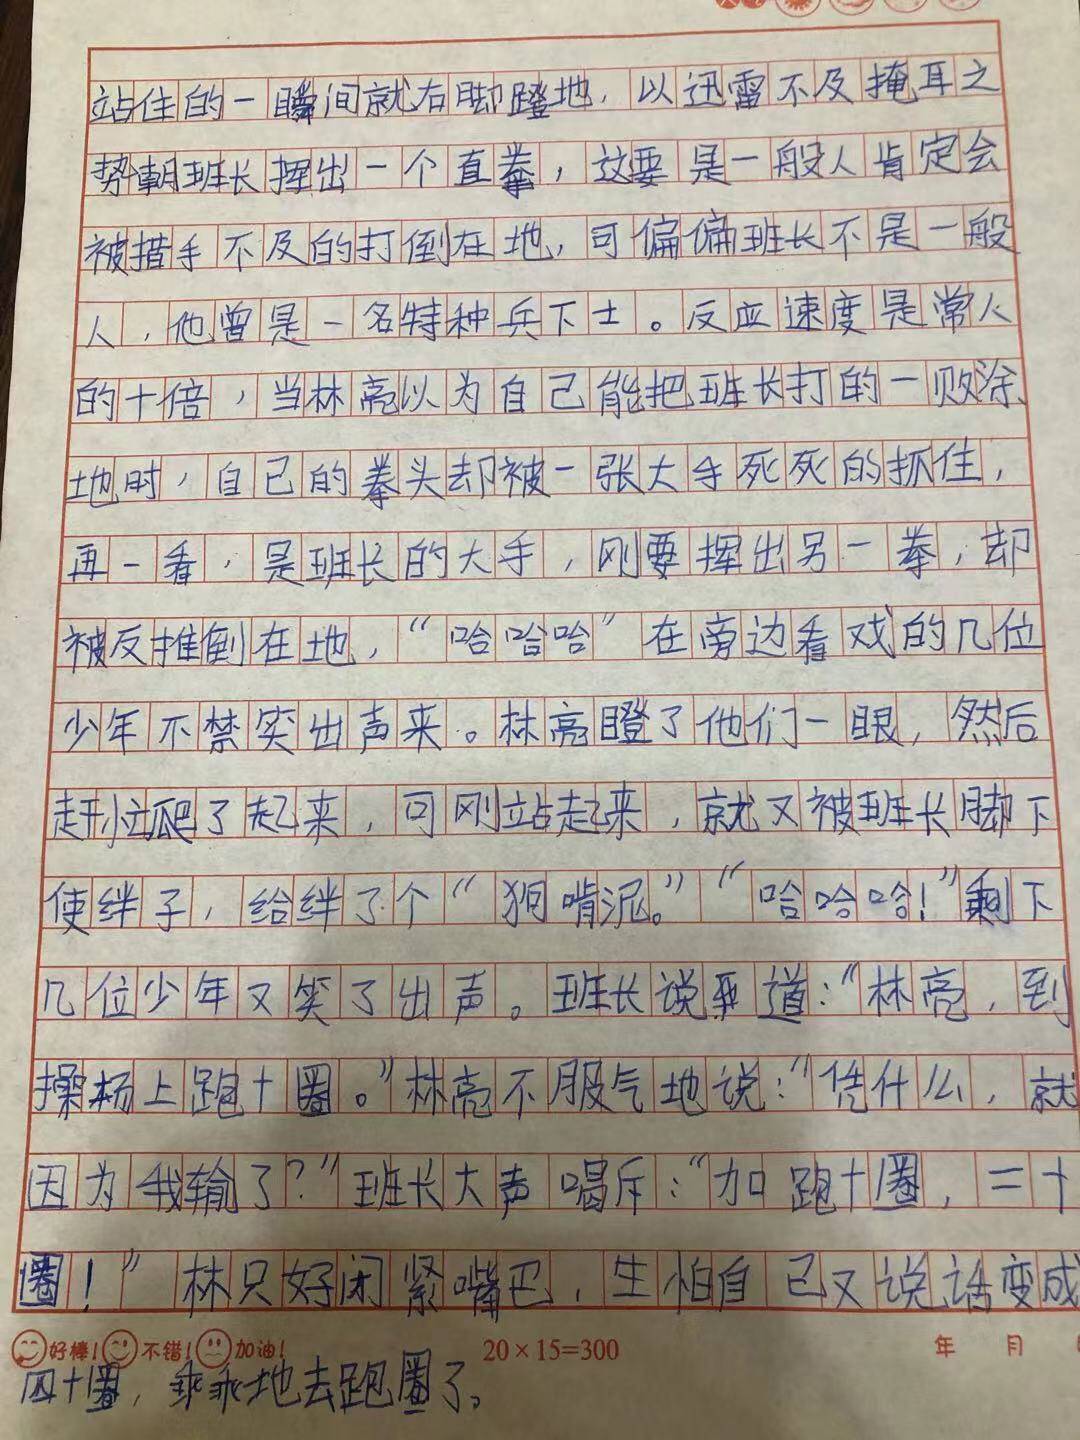 站住的一瞬间就右脚蹬地，以迅雷不及掩耳之
势朝班长挥出一个直拳，这要是一般人肯定会
被措手不及的打倒在地，可偏偏班长不是一般
人，他曾是一名特种兵下士。反应速度是常人
的十倍，当林亮以为自己能把班长打的一败涂
地时，自己的拳头却被一张大手死死的抓住，
再一看，是班长的大手，刚要挥出另一拳，却
被反推倒在地，“哈哈哈”在旁边看戏的几位
少年不禁笑出声来。林亮瞪了他们一眼，然后
赶忙爬了起来，可刚站起来，就又被班长脚下
使绊子，给绊了个“狗啃泥。”“哈哈哈！”剩下
几位少年又笑了出声。班长说道：“林亮，到
操场上跑十圈。”林亮不服气地说：“凭什么，就
因为我输了？”班长大声喝斥：“加跑十圈，二十
圈！”林只好闭紧嘴巴，生怕自己又说话变成
好棒！不错！加油！ 20×15=300 年 月
四十圈，乖乖地去跑圈了。